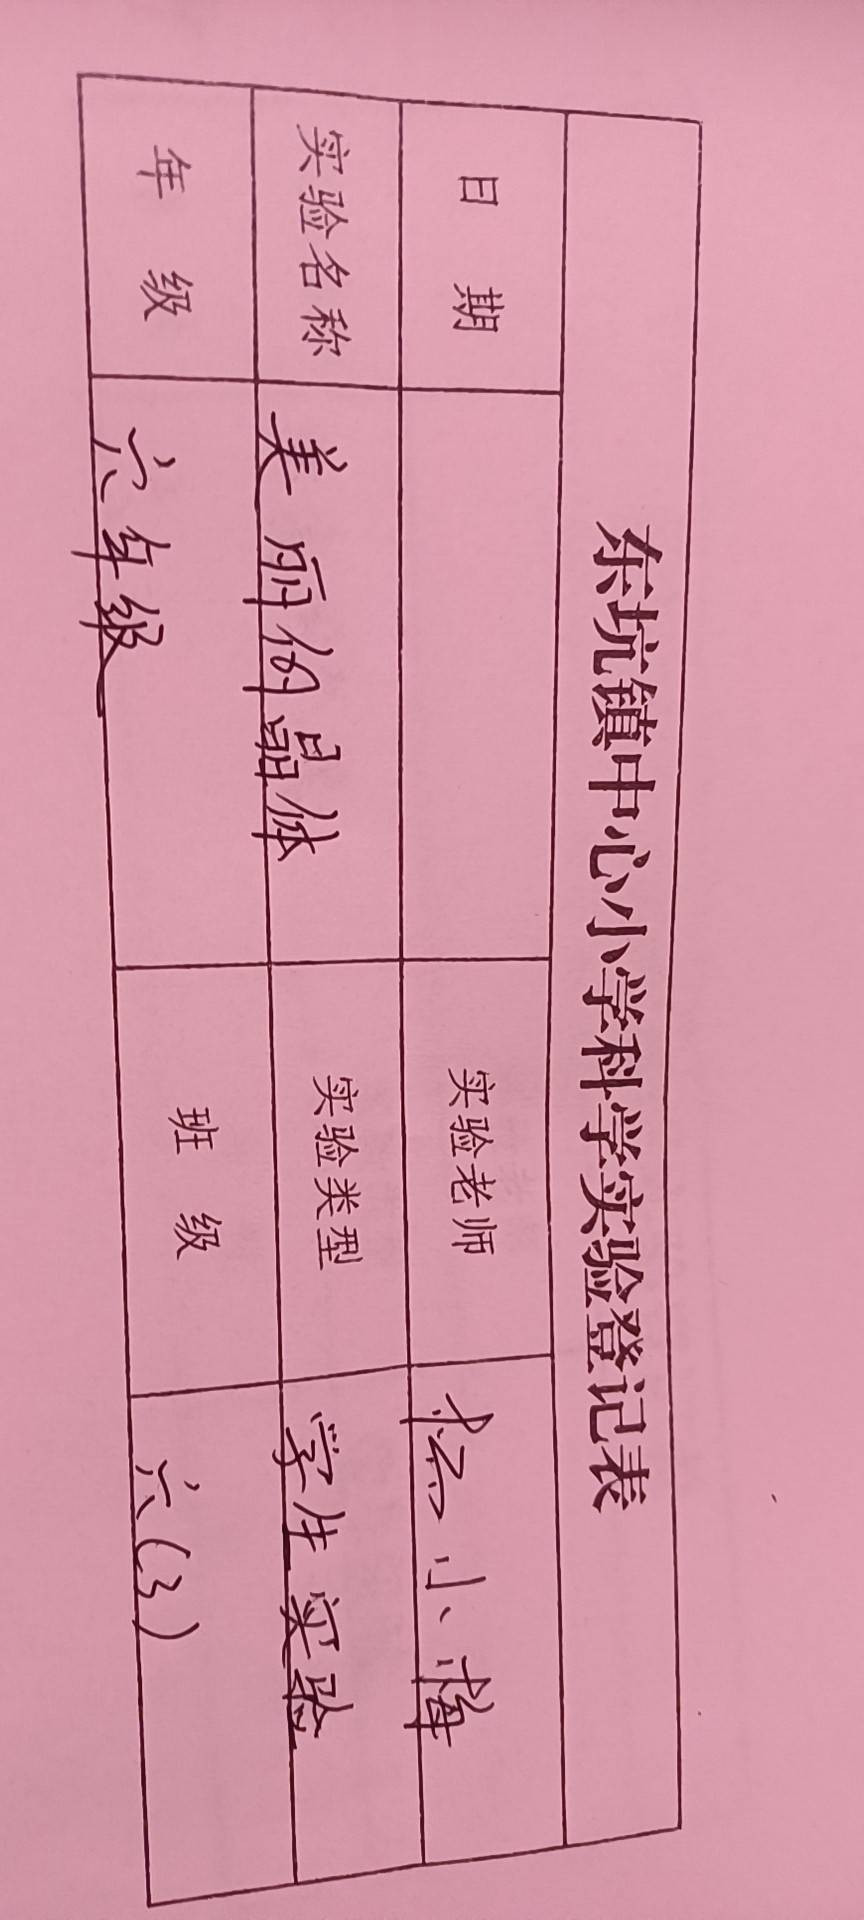 东坑镇中心小学科学实验登记表
日 期 实验老师 小梅
实验名称 美丽的晶体 实验类型 学生实验
年 级 六年级 班 级 六(3)